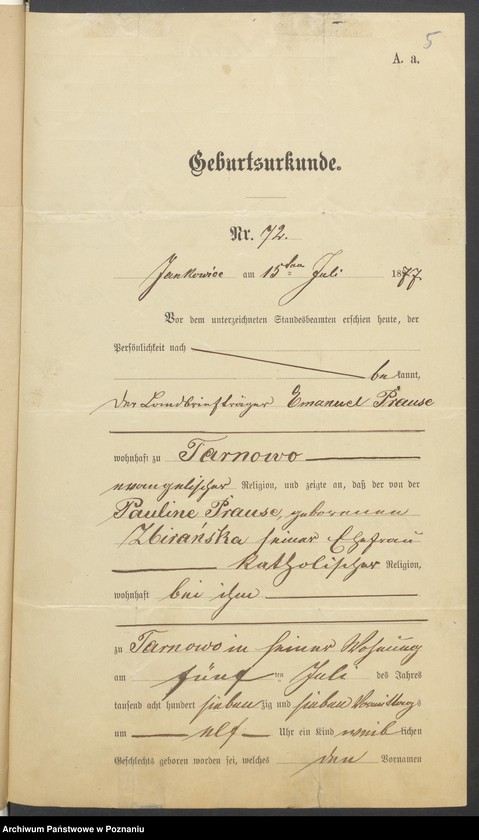 5
A. a.
Geburtsurkunde.
Nr. 72.
Jankowice am 15ten Juli 1877
Vor dem unterzeichneten Standesbeamten erschien heute, der
Persönlichkeit nach
bekannt,
der Landbriefträger Emanuel Prause
wohnhaft zu Tarnowo
evangelischer Religion, und zeigte an, daß der von der
Pauline Prause, geborenen
Zbirańska seiner Ehefrau
katholischer Religion,
wohnhaft bei ihm
zu Tarnowo in seiner Wohnung
am fünften Juli des Jahres
tausend acht hundert siebenzig und sieben Vormittags
um elf Uhr ein Kind weiblichen
Geschlechts geboren worden sei, welches den Vornamen
Archiwum Państwowe w Poznaniu